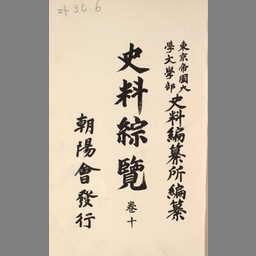 東京帝國大
學文學部
史料編纂所編纂
史料綜覽
卷十
朝陽會發行